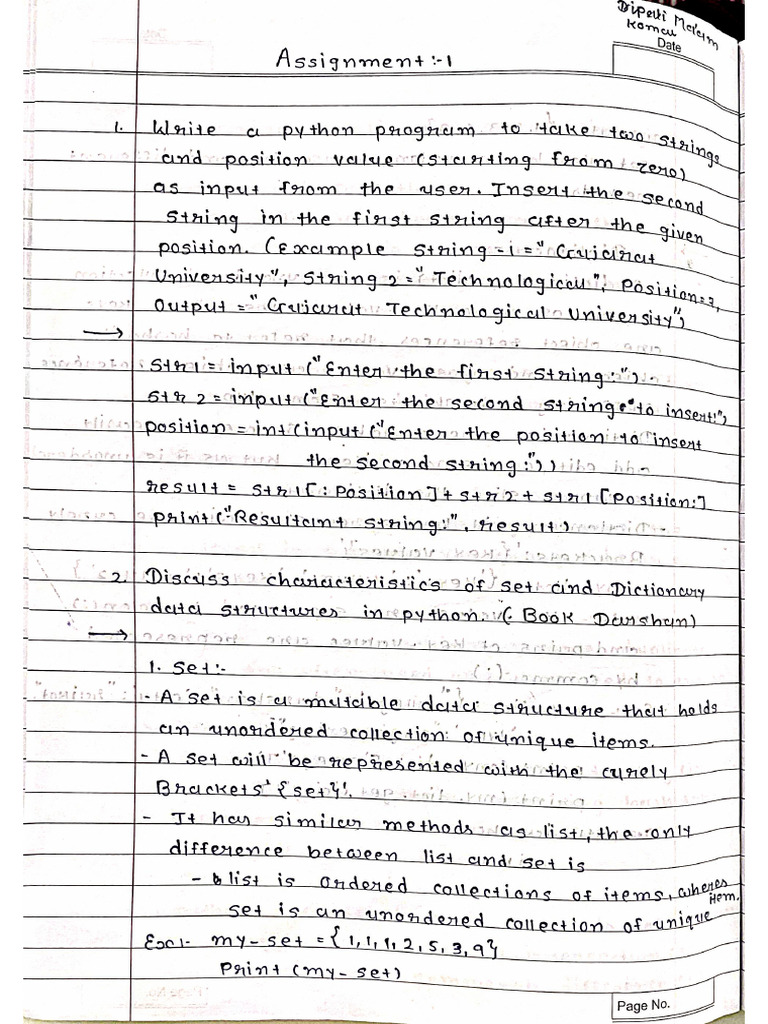 Dipali Ma'am
Komal
Date
Assignment :- 1
1. Write a python program to take two strings
and position value (starting from zero)
as input from the user. Insert the second
string in the first string after the given
position. (Example string-1 = "Gujarat
University", string 2 = "Technological", Position=7,
Output = "Gujarat Technological University")
→
str1 = input ("Enter the first string:")
str 2 = input ("Enter the second string to insert:")
position = int (input ("Enter the position to insert
the second string:"))
result = str1[:Position] + str2 + str1 [Position:]
print ("Resultant string:", result)
2. Discuss characteristics of set and Dictionary
data structures in python. (Book Darshan)
→
1. Set:-
- A set is a mutable data structure that holds
an unordered collection of unique items.
- A set will be represented with the curely
Brackets '{set}'.
- It has similar methods as list, the only
difference between list and set is
- list is ordered collections of items, wheres
set is an unordered collection of unique item.
Ex:- my-set = {1,1,1,2,5,3,9}
Print (my-set)
Page No.